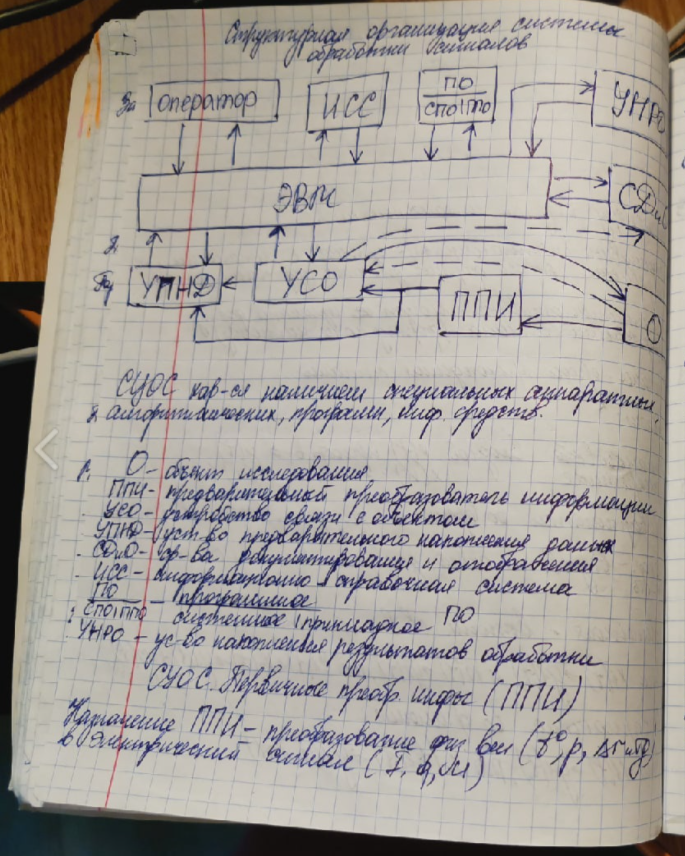 Структурная организация системы
обработки сигналов
Оператор
ИСС
ПО
СПО|ППО
УНРО
ЭВМ
СДиО
УПНД
УСО
ППИ
О
СУОС хар-ся наличием специальных аппаратных,
алгоритмических, програмн, инф. средств.
О - объект исследования
ППИ - предварительный преобразователь информации
УСО - устройство связи с объектом
УПНД - уст-во предварительного накопления данных
СДиО - ср-во документирования и отображения
ИСС - информационно справочная система
ПО - программное
СПО|ППО системное |прикладное ПО
УНРО - ус-во накопления результатов обработки
СУОС. Первичные преобр. инфы (ППИ)
Назначение ППИ - преобразование физ вел (t°, p,
в электрический сигнал (